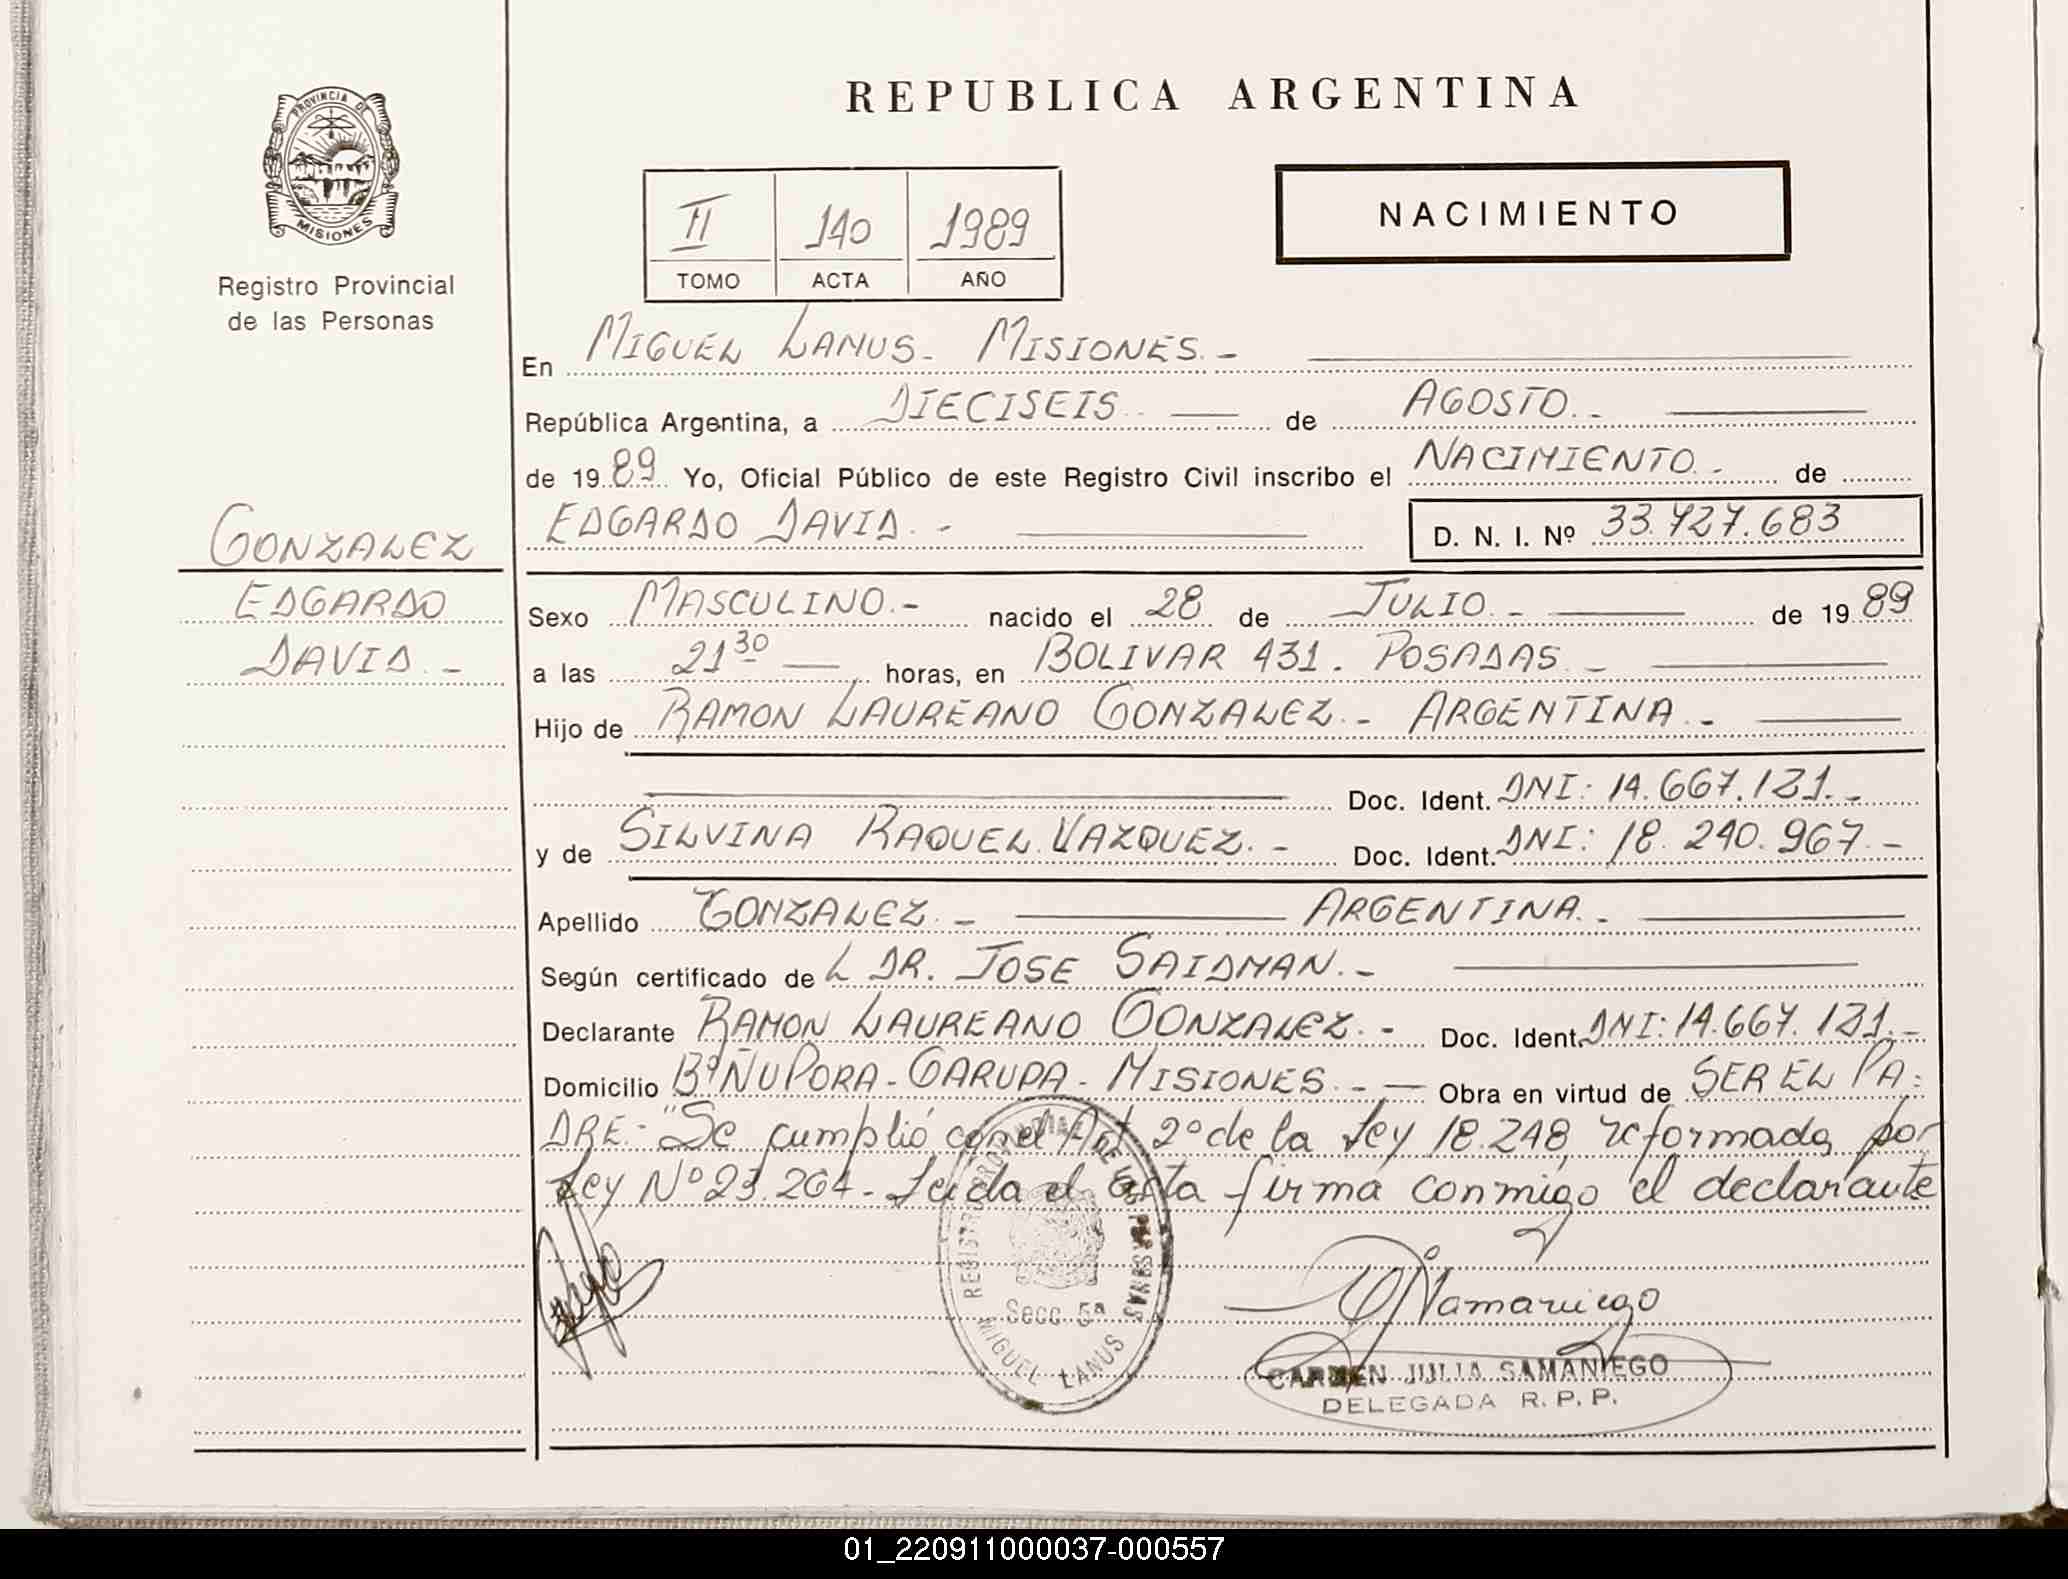 REPUBLICA ARGENTINA
PROVINCIA DE
MISIONES
Registro Provincial
de las Personas
II 140 1989
TOMO ACTA AÑO
NACIMIENTO
En MIGUEL LANUS - MISIONES.-
República Argentina, a DIECISEIS.. de AGOSTO..-
de 1989 Yo, Oficial Público de este Registro Civil inscribo el NACIMIENTO.- de
EDGARDO DAVID.- D. N. I. Nº 33.727.683
GONZALEZ
EDGARDO
DAVID.-
Sexo MASCULINO.- nacido el 28 de JULIO.- de 1989
a las 21 30 horas, en BOLIVAR 431. POSADAS.-
Hijo de RAMON LAUREANO GONZALEZ.- ARGENTINA.-
Doc. Ident. DNI: 14.667.121.-
y de SILVINA RAQUEL VAZQUEZ.- Doc. Ident. DNI: 18.240.967.-
Apellido GONZALEZ.- ARGENTINA.-
Según certificado de L DR. JOSE SAIDMAN.-
Declarante RAMON LAUREANO GONZALEZ.- Doc. Ident. DNI: 14.667.121.-
Domicilio Bº ÑU PORA - GARUPA - MISIONES.- Obra en virtud de SER EL PA-
DRE.- "Se cumplió con el Art 2º de la Ley 18.248, reformada por
Ley Nº 23.264 - Leída el acta firma conmigo el declarante
REGISTRO PROVINCIAL DE LAS PERSONAS
Secc. 5ª
MIGUEL LANUS
CJSamaniego
CARMEN JULIA SAMANIEGO
DELEGADA R. P. P.
01_220911000037-000557